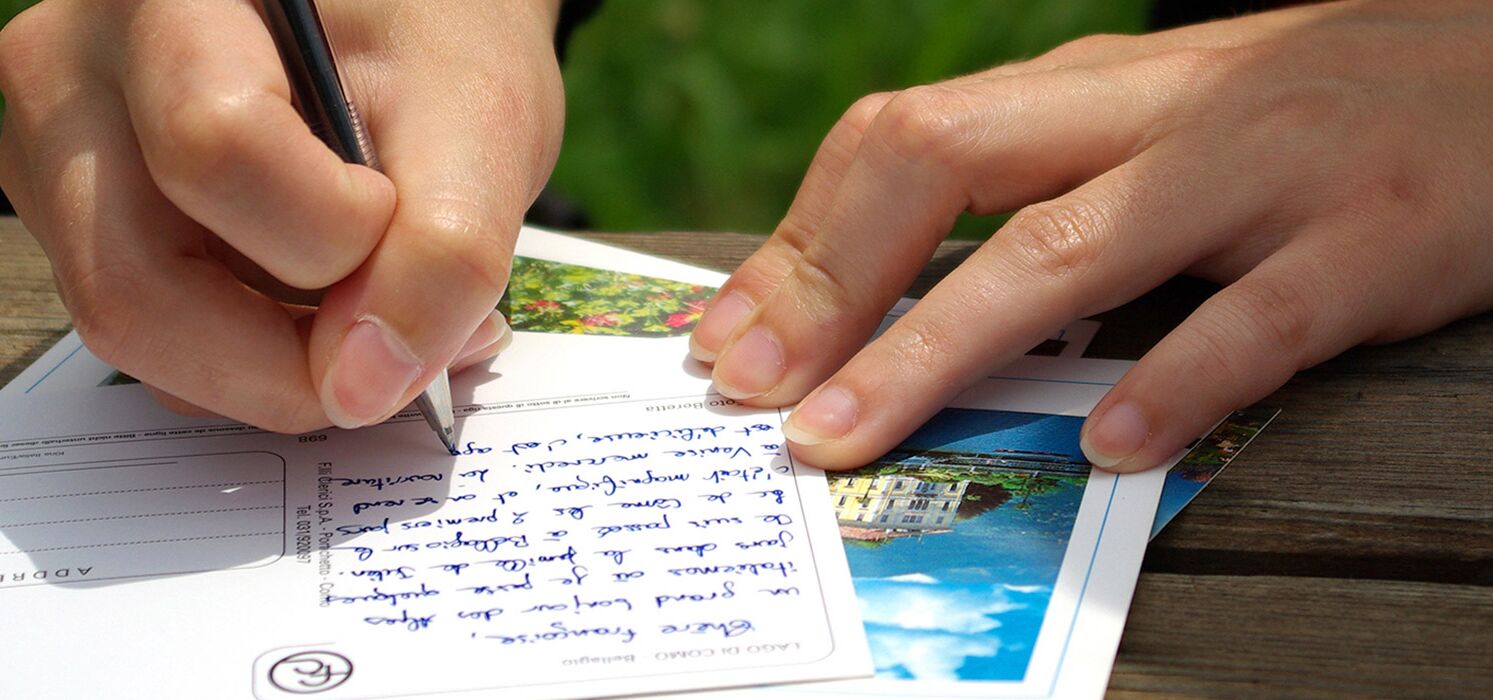 LAGO DI COMO - Bellagio
Chère Françoise,
un grand bonjour des Alpes
italiennes où je passe quelques
jours dans la famille de
Je suis passé à Bellagio sur le
lac de Côme les 2 premiers jours
c'était magnifique, et on se rend
à Venise mercredi. La nourriture
est délicieuse, c'est
Foto Beretta
Non scrivere al di sotto di questa riga
F.lli Clerici S.p.A. - Como
Tel.
698